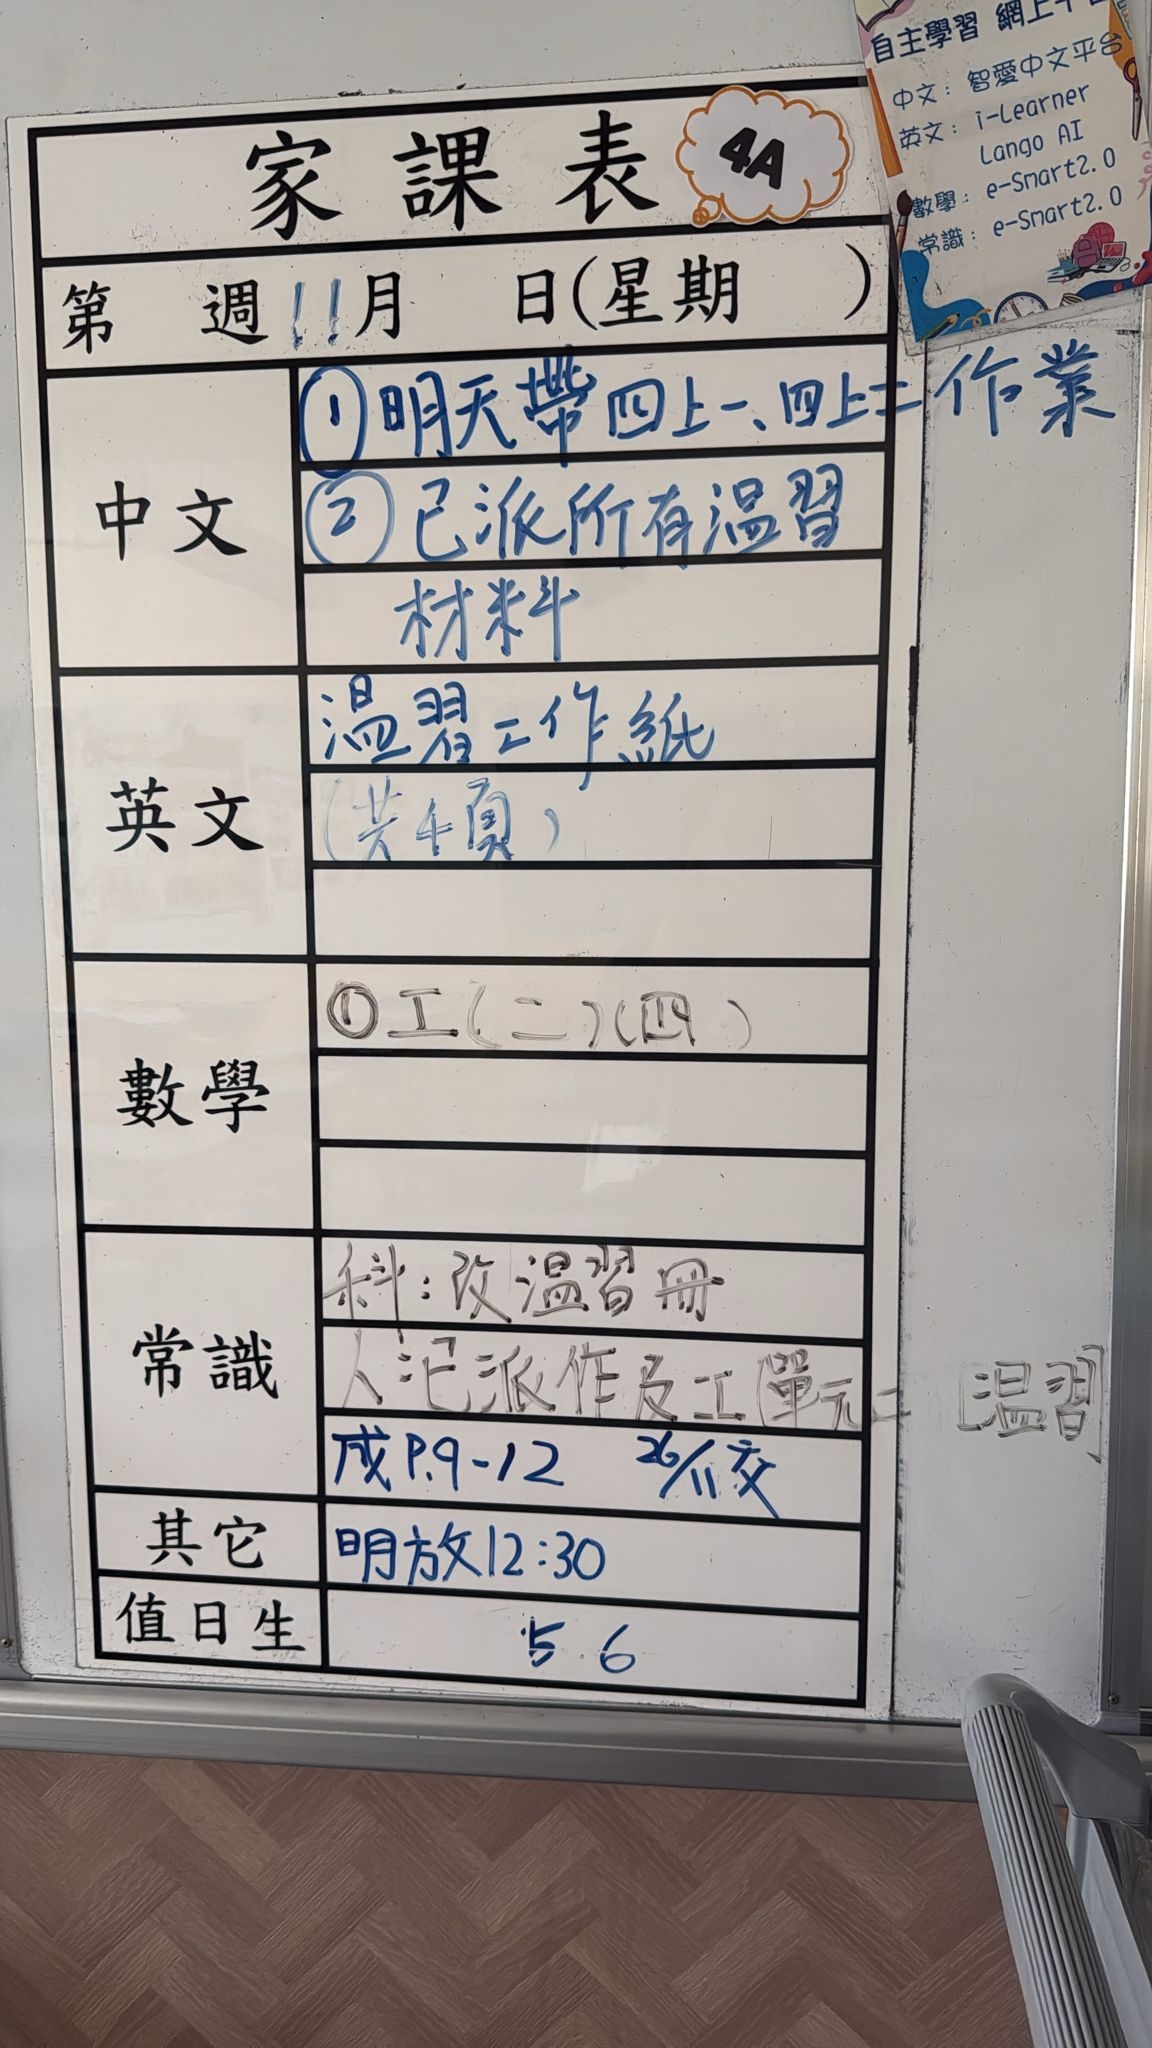 自主學習 網上平台
中文：智愛中文平台
英文：i-Learner
Lango AI
數學：e-Smart2.0
常識：e-Smart2.0
家課表 4A
第 週 11月 日(星期 )
中文
①明天帶四上一、四上二作業
②已派所有温習
材料
英文
温習工作紙
(共4頁)
數學
①工(二)(四)
常識
科：改温習冊
人：已派作及工(單元二 [温習]
成P.9-12 26/11交
其它
明放12:30
值日生
5 6